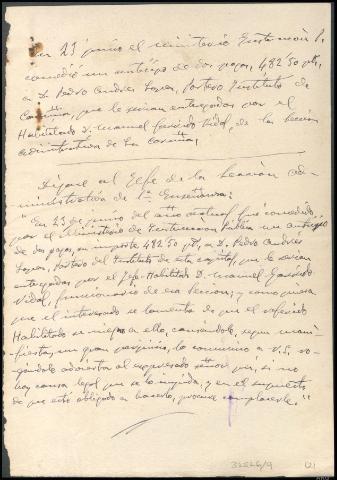 En 23 junio el ministerio Instrucción P.
concedió un anticipo de dos pagas, 482'50 pts,
a D. Pedro Andres Portero Instituto de
Coruña, que le serian entregadas por el
Habilitado D. Manuel Garrido Vidal, de la Sección
administrativa de La Coruña.
Dígase al Jefe de la Sección ad-
ministrativa de 1ª Enseñanza:
"En 23 de junio del año actual fué concedido
por el Ministerio de Instruccion Pública un anticipo
de dos pagas, en importe 482'50 pts, a D. Pedro Andres
Portero del Instituto de esta capital, que le serian
entregadas por el Habilitado D. Manuel Garrido
Vidal, funcionario de esa Seccion; y como quiera
que el interesado se lamenta de que el referido
Habilitado se niega a ello, causandole, segun mani-
fiesta, un gran perjuicio, lo comunico a V.S. ro-
gándole advierta al expresado señor que, si no
hay causa legal que se lo impida, y en el supuesto
de que esté obligado a hacerlo, procure complacerle."
32526/9 (2)